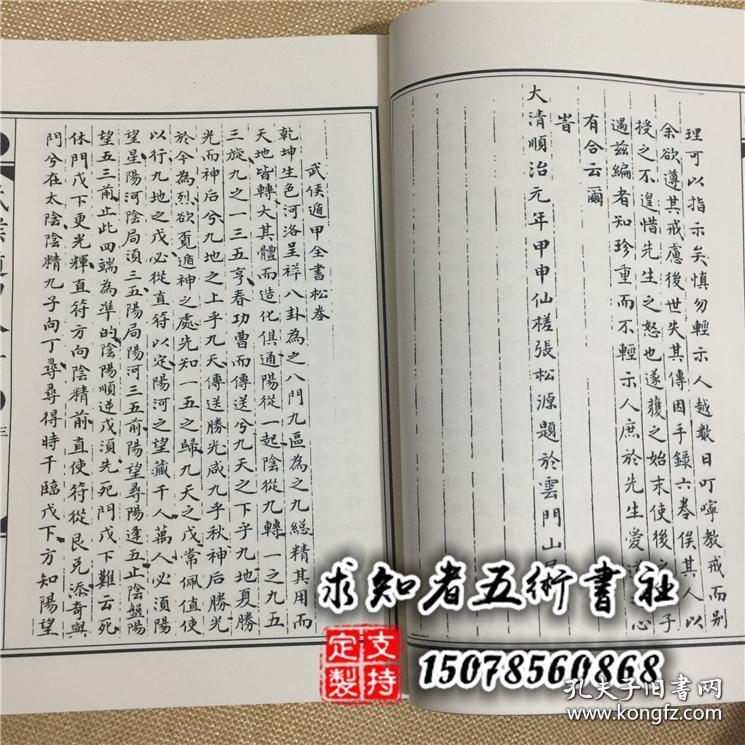 理可以指示矣慎勿輕示人越数日叮嚀教戒而别
余欲遵其戒慮後世失其傳因手錄六卷俟其人以
授之不遑惜先生之怒也遂獲之始末使後之
子
遇兹編者知珍重而不輕示人庶於先生愛
心
有合云爾
大清順治元年甲申仙槎張松源題於雲門山
旹
武侯遁甲全書松卷
乾坤生色河洛呈祥八卦為之八門九區為之九總精其用而
天地皆轉大其體而造化俱通陽從一起陰從九轉一之九五
三旋九之一三五亨春功曹而傳送兮九天之下乎九地夏勝
光而神后兮九地之上乎九天傳送勝光咸九乎秋神后勝光
於今為烈欲覓遁神之處先知一五之歸九天之戊常佩值使
以行九地之戊必從直符以定陽河之望藏千人萬人必須陽
望星陽河陰局須三五陽局陽河三五前陽望尋陽逢五止陰盤陽
望五三前止此四端為準的陰陽順逆戊須先死門戊下難云死
休門戊下更光輝直符方向陰精前直使符從艮兑添奇與
門兮在太陰陰精九子向丁尋尋得時干臨戊下方知陽望
求知者五術書社
支持定製
15078560868
孔夫子旧書网
www.kongfz.com